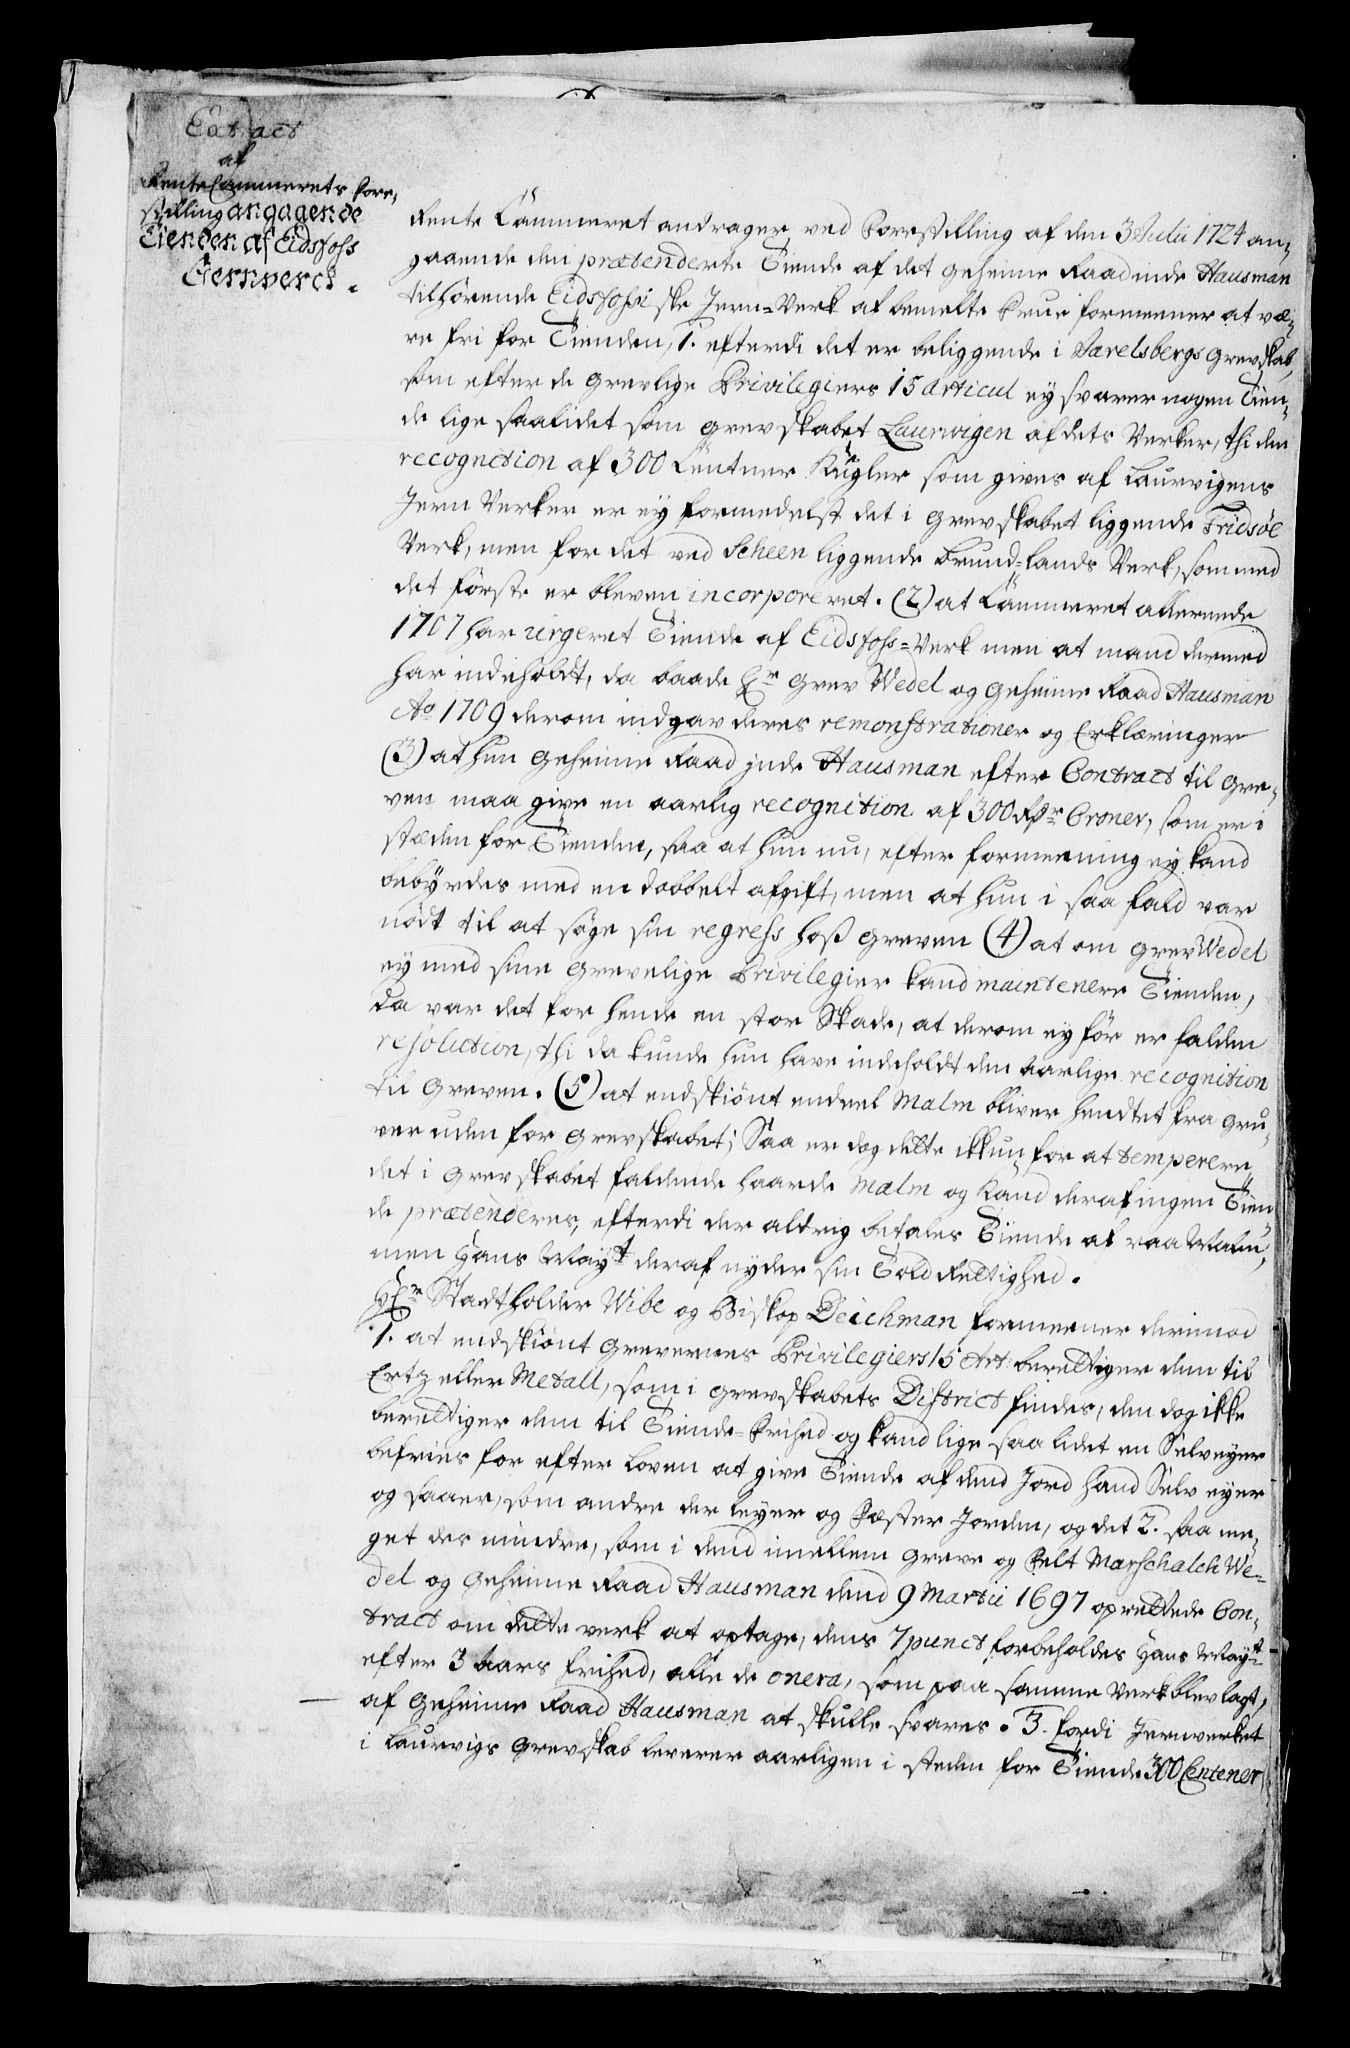 Extract
af
Rente Cammerets fore-
stilling angagende
Tienden af Eidsfoss
Jernverch.
Rente Cammeret andrager ved Forestilling af den 3 Julii 1724 an-
gaaende den prætenderte Tiende af det Geheime Raadinde Hausman
tilhørende Eidsfossiske Jern-Verk at bemelte Frue formeener at væ-
re fri for Tienden, 1. efterdi det er beliggende i Jarelsbergs Grevskab,
som efter de Grevlige Privilegiers 15 Articul ey svarer nogen Tien-
de lige saalidet som Grevskabet Laurwigen af dets Verker, thi den
recognition af 300 Centner Kugler som gives af Laurvigens
Jern Verker er ey formedelst det i Grevskabet liggende Fridsöe
Verk, men for det ved Scheen liggende Brund-lands Verk, som med
det förste er bleven incorporeret. (2) at Cammeret allerede
1707 har urgeret Tiende af Eidsfoss-Verk men at mand dermed
har indeholdt, da baade Hr Grev Wedel og Geheime Raad Hausman
Ao 1709 derom indgav deres remonstrationer og Erklæringer
(3) at hun Geheime Raadinde Hausman efter Contract til Gre-
ven maa give en aarlig recognition af 300 Rdr Croner, som er i
stæden for Tienden, saa at hun nu, efter formeening ey kand
bebyrdes med en dobbelt afgift, men at hun i saa fald var
nödt til at söge sin regress hoss Greven (4) at om Grev Wedel
ey med sine Grevelige Privilegier kand maintenere Tienden,
da var det for hende en stor Skade, at derom ey för er falden
resolution, thi da kunde hun have indeholdt den aarlige recognition
til Greven. (5) at endskiönt endeel Malm bliver hendtet fra Gru-
ver uden for Grevskabet; Saa er dog dette ikkun for at temperere
det i Grevskabet faldende haarde Malm og kand deraf ingen Tien-
de prætenderes, efterdi der aldrig betales Tiende af raa Malm,
men Hans Mayt deraf nyder sin Told Rettighed.
Hr Stadtholder Wibe og Biskop Deichman formeener derimod
1. at endskiönt Grevernes Privilegiers 15 Art: berettiger dem til
Ertz eller Metall, som i Grevskabets District findes, den dog ikke
berettiger dem til Tiende-frihed og kand lige saa lidet en Selveyer
befries for efter Loven at give Tiende af dend Jord hand Selv eyer
og saaer, som andre der leyer og Fæster Jorden, og det 2. saa me-
get des mindre, som i dend imellem Greve og Felt Marschalck We-
del og Geheime Raad Hausman dend 9 Martii 1697 oprettede Con-
tract om dette verk at optage, dens 7 punct forbeholdes Hans Mayt
efter 3 Aars frihed, alle de onera, som paa samme verk blev lagt,
af Geheime Raad Hausman at skulle svares. 3. fordi Jernverket
i Laurvigs Grevskab leverer aarligen i steden for Tiende 300 Centener